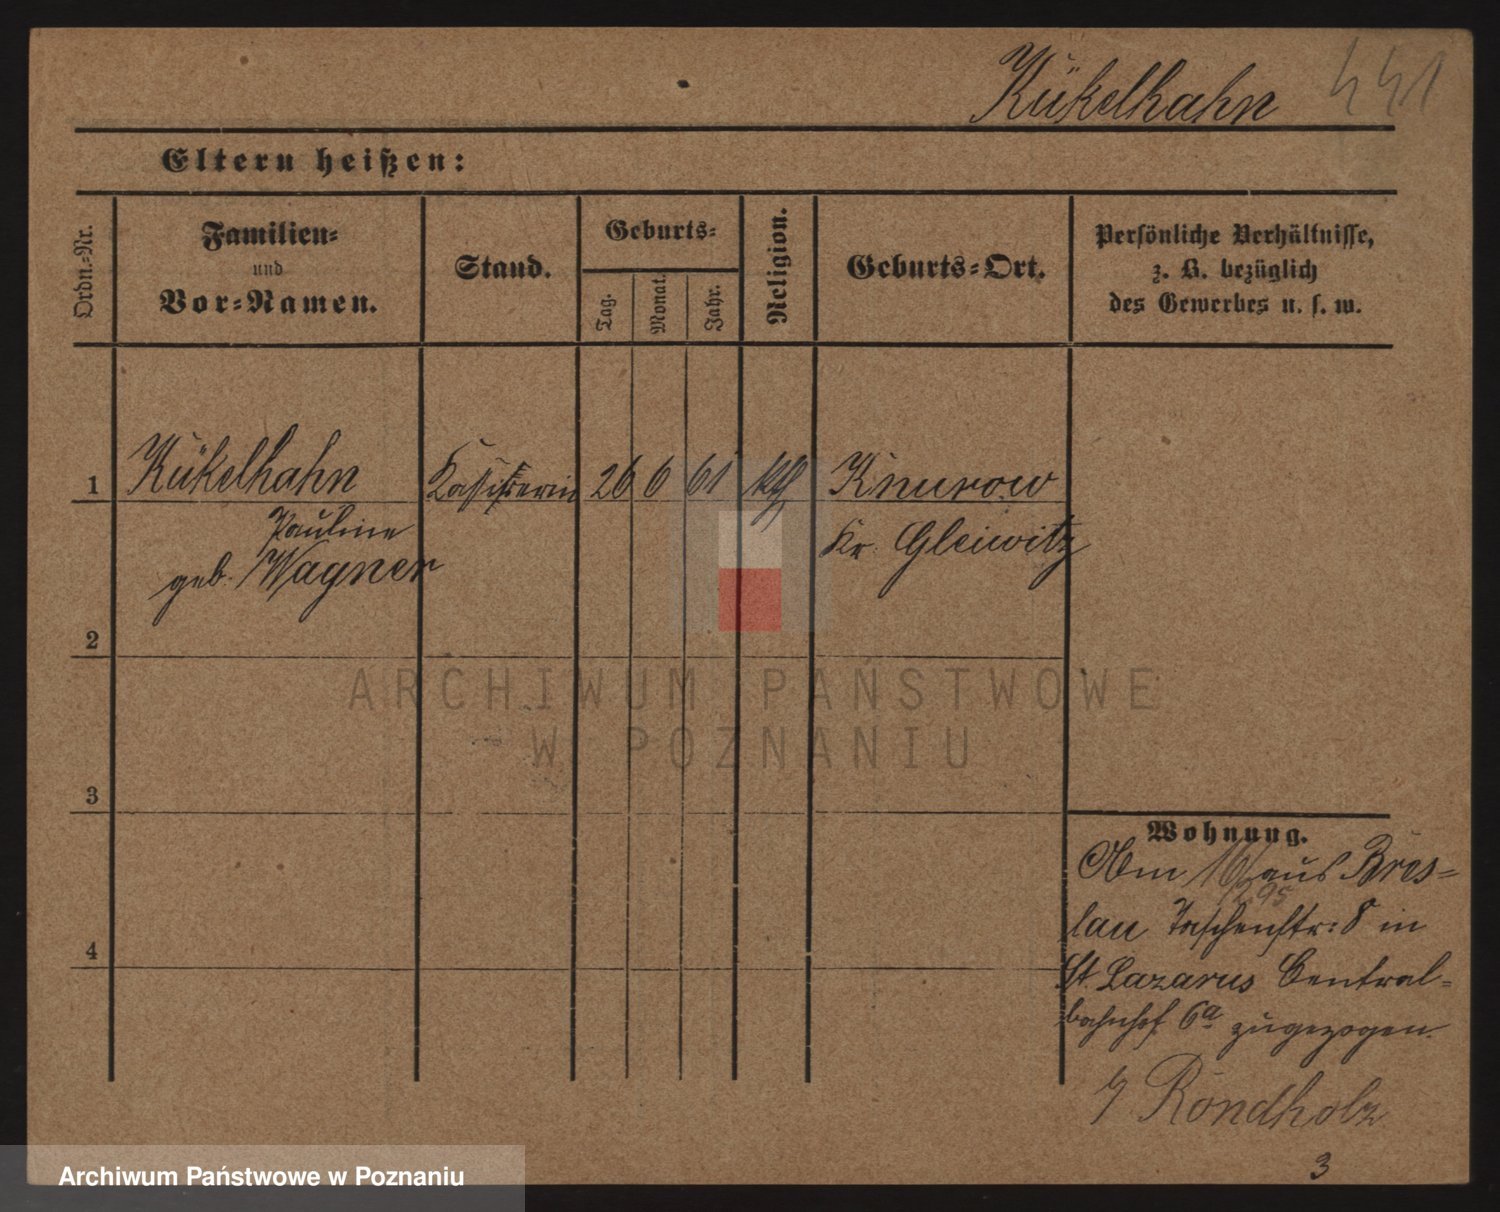 Kükelhahn 441
Eltern heißen:
Ordn.-Nr.
Familien-
und
Vor-Namen.
Stand.
Geburts-
Tag.
Monat.
Jahr.
Religion.
Geburts-Ort.
Persönliche Verhältnisse,
z. B. bezüglich
des Gewerbes u. s. w.
1 Kükelhahn Kassirerin 26 6 61 kth Knurow
Pauline
geb. Wagner
Kr. Gleiwitz
2
3
4
Wohnung.
Am 16/2 95 aus Bres-
lau Taschenstr: 8 in
St. Lazarus Central-
bahnhof 6a zugezogen.
Rondholz
3
ARCHIWUM PAŃSTWOWE
W POZNANIU
Archiwum Państwowe w Poznaniu